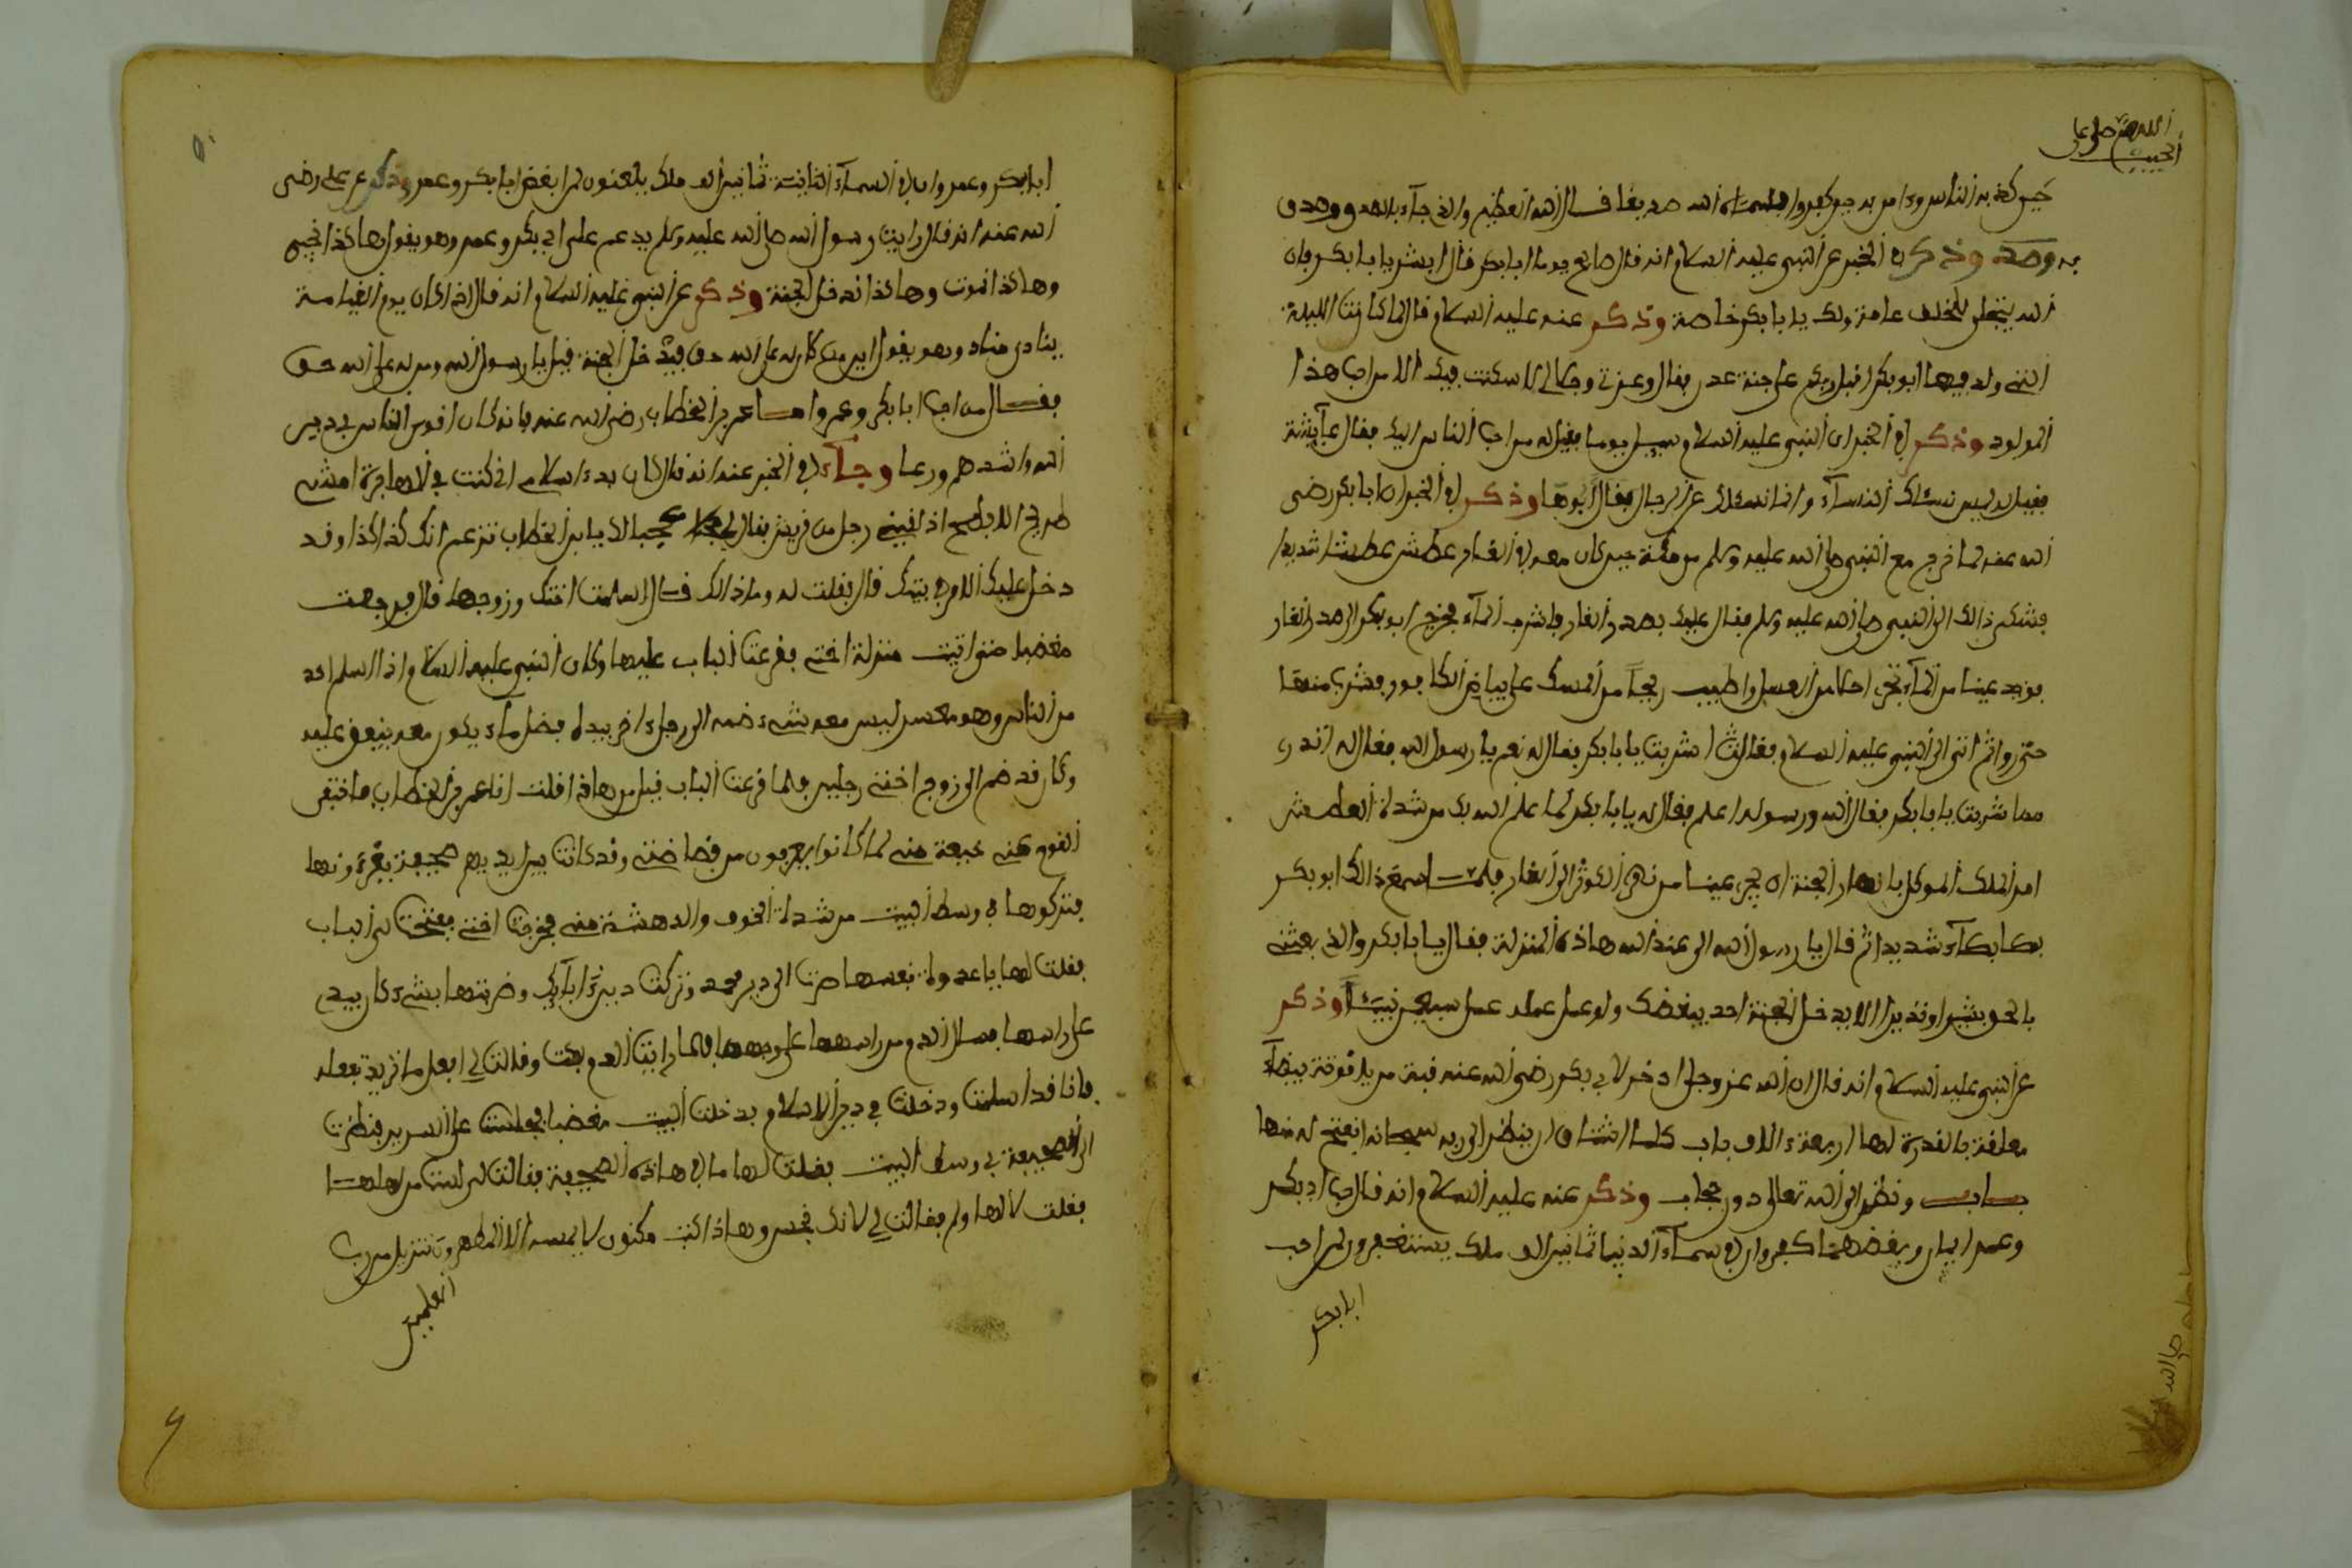 اللهم صل على
الحبيب
حين كذبه الناس وءامن به حين كفروا وسماه الله صديقا فقال الله العظيم والذي جآء بالصدق وصدق
به وذكر في الخبر عن النبي عليه السلام انه قال صالح يوما ابا بكر فقال ابشر يا با بكر فإن
الله يتجلى للخلف عامة ولك يا با بكر خاصة وذكر عنه عليه السلام قال لما كانت الليلة
التي ولد فيها ابو بكر اقبل ربكم على جنة عدن فقال وعزتي وجلالي لا سكنت فيك الا من احب هذا
المولود وذكر في الخبر ان النبي عليه السلام سيل يوما فقيل له من احب الناس اليك فقال عآيشة
فقيل له ليس نسئلك النسآء وانما نسئلك عن الرجال فقال أبوها وذكر في الخبر ان ابا بكر رضي
الله عنه لما خرج مع النبي صلى الله عليه وسلم من مكة حين كان معه في الغار عطش عطشا شديدا
فشكى ذالك الى النبي صلى الله عليه وسلم فقال عليك بصدر الغار فاشرب المآء فخرج ابو بكر الى صدر الغار
فوجد عينا من المآء تجري احلا من العسل واطيب ريحاً من المسك على بياض الكافور فشرب منها
حتى روا ثم اتى الى النبي عليه السلام فقال له اشربت يا با بكر فقال له نعم يا رسول الله فقال له اتدري
مما شربت يا با بكر فقال الله ورسوله اعلم فقال له يا با بكر لما علم الله بك من شدة العطش
امر الملك الموكل بانهار الجنة ان يجري عينا من نهر الكوثر الى الغار فلما سمع ذالك ابو بكر
بكا بكآء شديدا ثم قال يا رسول الله الي عند الله هاذه المنزلة فقال يا با بكر والذي بعثني
بالحق بشيرا ونذيرا لا يدخل الجنة احد يبغضك ولو عمل عمله عمل سبعين نبيئاً وذكر
عن النبي عليه السلام انه قال ان الله عز وجل ادخر لابي بكر رضي الله عنه قبة من ياقوتة بيضآء
معلقة بالقدرة لها اربعة ءالاف باب كلما اشتاق ان ينظر الى ربه سبحانه انفتح له منها
باب ونظر الى الله تعالى دون حجاب وذكر عنه عليه السلام انه قال حب ابي بكر
وعمر ايمان وبغضهما كفر وان في سمآء الدنيا ثمانين الف ملك يستغفرون لمن احب
ابا بكر
ابا بكر وعمر وان في السمآء الثانية ثمانين الف ملك يلعنون لمن ابغض ابا بكر وعمر وذكر عن علي رضي
الله عنه انه قال رايت رسول الله صلى الله عليه وسلم يدعم على ابي بكر وعمر وهو يقول هاكذا نحيى
وهاكذا نموت وهاكذا ندخل الجنة وذكر عن النبي عليه السلام انه قال اذا كان يوم القيامة
ينادي مناد وهو يقول اين من كان له على الله حق فيدخل الجنة قيل يا رسول الله ومن له على الله حق
فقال من احب ابا بكر وعمر واما عمر بن الخطاب رضي الله عنه فانه كان اقوى الناس في دين
الله واشدهم ورعا وجآء في الخبر عنه انه قال كان بدء اسلامي اني كنت في الهاجرة امشي
طريق الابطح اذ لقيني رجل من قريش فقال لي عجبا لك يا بن الخطاب تزعم انك كذا كذا وقد
دخل عليك الامر في بيتك قال فقلت له وما ذالك فقال اسلمت اختك وزوجها قال فرجعت
مغضبا حتى اتيت منزلة اختي فقرعت الباب عليها وكان النبي عليه السلام اذا اسلم احد
من الناس وهو معسر ليس معه شيء ضمه الى رجل ءاخر بيده فضل مآء يكون معه ينفق عليه
وكان قد ضم الى زوج اختي رجلين فلما قرعت الباب قيل من هاذا قلت انا عمر بن الخطاب فاختفى
القوم عني خيفة مني لما كانوا يعرفون من فضاضتي وقد كانت بين ايديهم صحيفة يقرءونها
فتركوها في وسط البيت من شدة الخوف والدهشة مني فخرجت اختي ففتحت لي الباب
فقلت لها يا عدوة نفسها صرت الى دين محمد وتركت دين ءابآئك وضربتها بشيء كان بيدي
على راسها فسال الدم من راسها على وجهها فلما رات الدم بكت وقالت لي افعل ما تريد تفعله
فانا قد اسلمت ودخلت في دين الاسلام فدخلت البيت مغضبا فجلست على السرير فنظرت
الى الصحيفة في وسط البيت فقلت لها ما في هاذه الصحيفة فقالت لي لست من اهلها
فقلت لها ولم فقالت لي لانك نجس وهاذا كتب مكنون لا يمسه الا المطهرون تنزيل من رب
العلمين